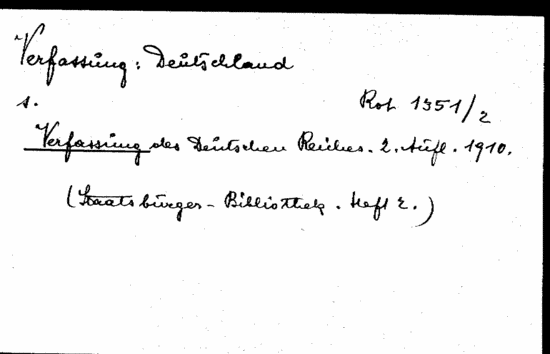 Verfassung: Deutschland
s. Rot 1351/2
Verfassung des Deutschen Reiches. 2. Aufl. 1910.
(Staatsbürger-Bibliothek. Heft 2.)